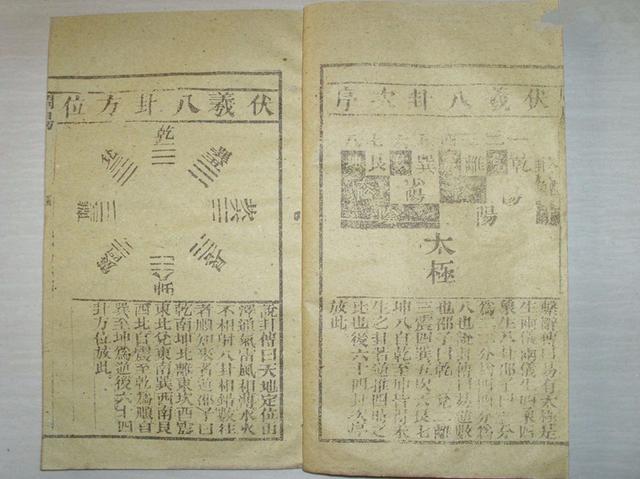 伏羲八卦次序
八七六五四三二一
坤艮坎巽震離兌乾
太陽
陽
太極
繫辭傳曰易有太極是
生兩儀兩儀生四象四
象生八卦邵子曰一分
爲二二分爲四四分爲
八也說卦傳曰易逆數
也邵子曰乾一兌二離
三震四巽五坎六艮七
坤八自乾至坤皆得未
生之卦若逆推四時之
比也後六十四卦次序
放此
周易
伏羲八卦方位
乾
兌
離
震
坤
艮
坎
巽
說卦傳曰天地定位山
澤通氣雷風相薄水火
不相射八卦相錯數往
者順知來者逆邵子曰
乾南坤北離東坎西震
東北兌東南巽西南艮
西北自震至乾爲順自
巽至坤爲逆後六十四
卦方位放此